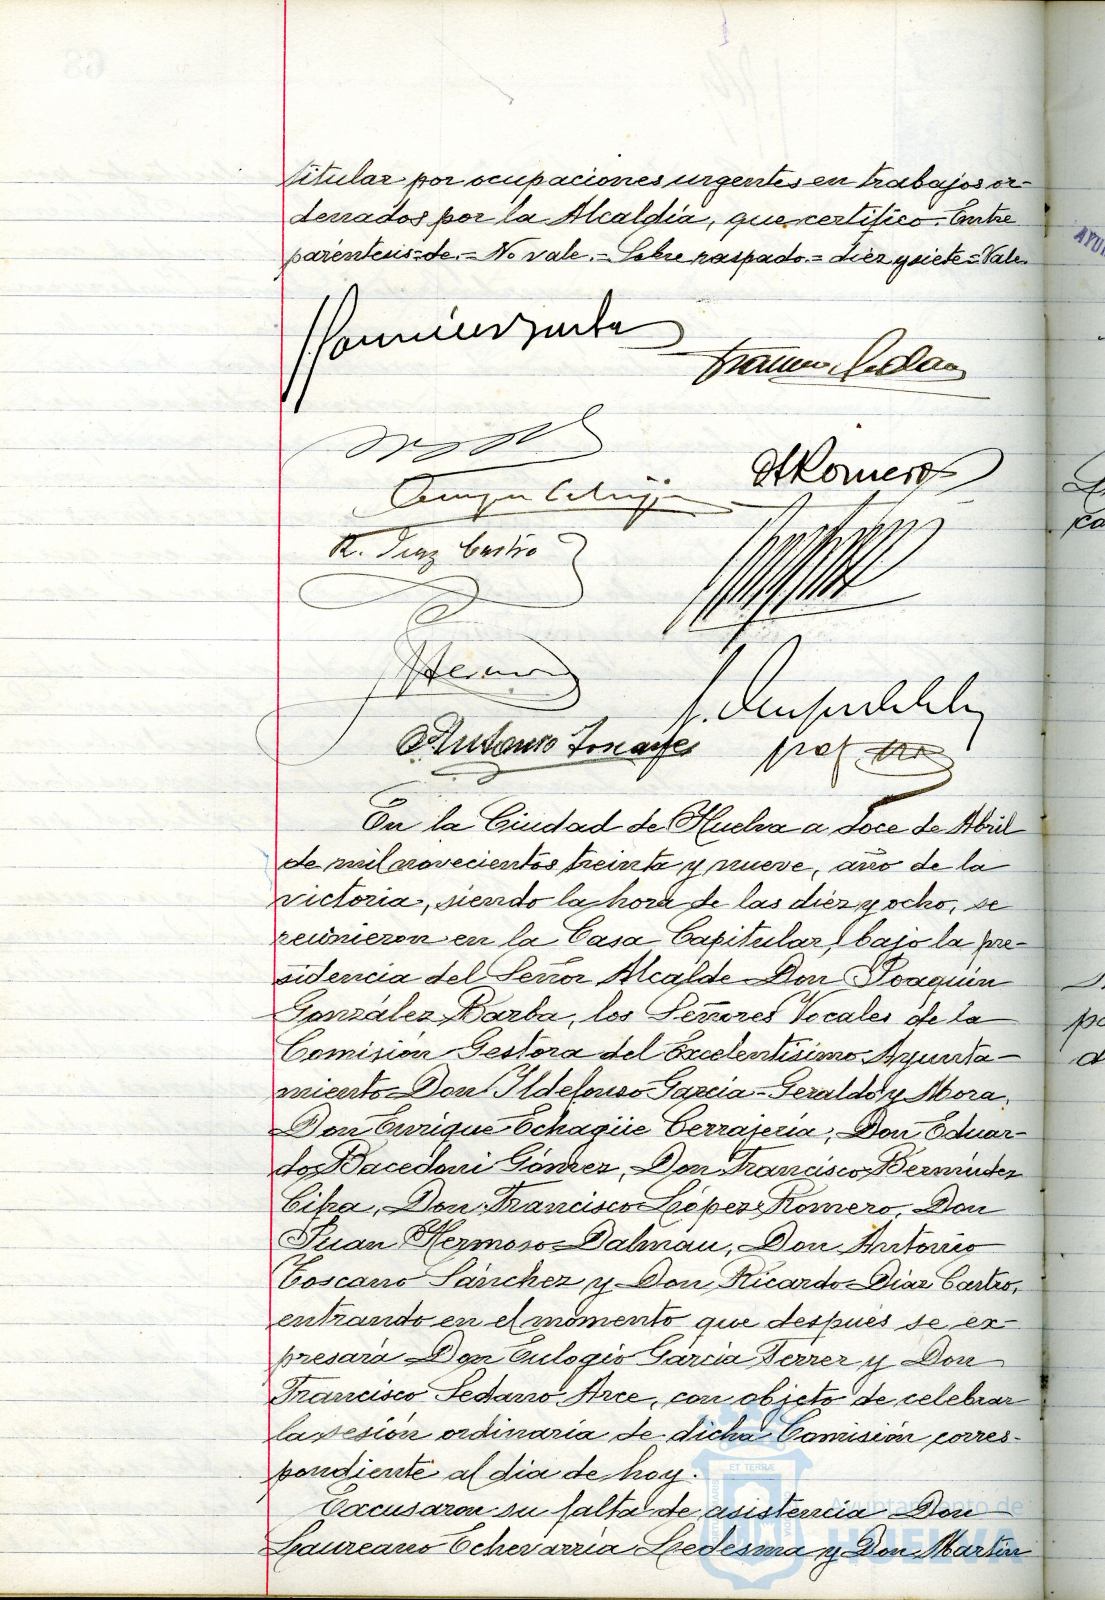 titular por ocupaciones urgentes en trabajos or-
denados por la Alcaldía, que certifico. Entre
paréntesis=de.=No vale.=Sobre raspado.=diez y siete=Vale.
Francisco Sedano
H Romero
R. Diaz Castro
JHermoso
Antonio Toscano
En la Ciudad de Huelva a doce de Abril
de mil novecientos treinta y nueve, año de la
victoria, siendo la hora de las diez y ocho, se
reunieron en la Casa Capitular, bajo la pre-
sidencia del Señor Alcalde Don Joaquín
González Barba, los Señores Vocales de la
Comisión Gestora del Excelentísimo Ayunta-
miento Don Ildefonso García-Geraldo y Mora,
Don Enrique Echagüe Cerrajería, Don Eduar-
do Bacedoni Gómez, Don Francisco Bermúdez
Cifra, Don Francisco López Romero, Don
Juan Hermoso Dalmau, Don Antonio
Toscano Sánchez y Don Ricardo Díaz Castro,
entrando en el momento que después se ex-
presará Don Eulogio García Ferrer y Don
Francisco Sedano Arce, con objeto de celebrar
la sesión ordinaria de dicha Comisión corres-
pondiente al día de hoy.
Excusaron su falta de asistencia Don
Laureano Echevarría Ledesma y Don Martín
ET TERRÆ
Ayuntamiento de
HUELVA